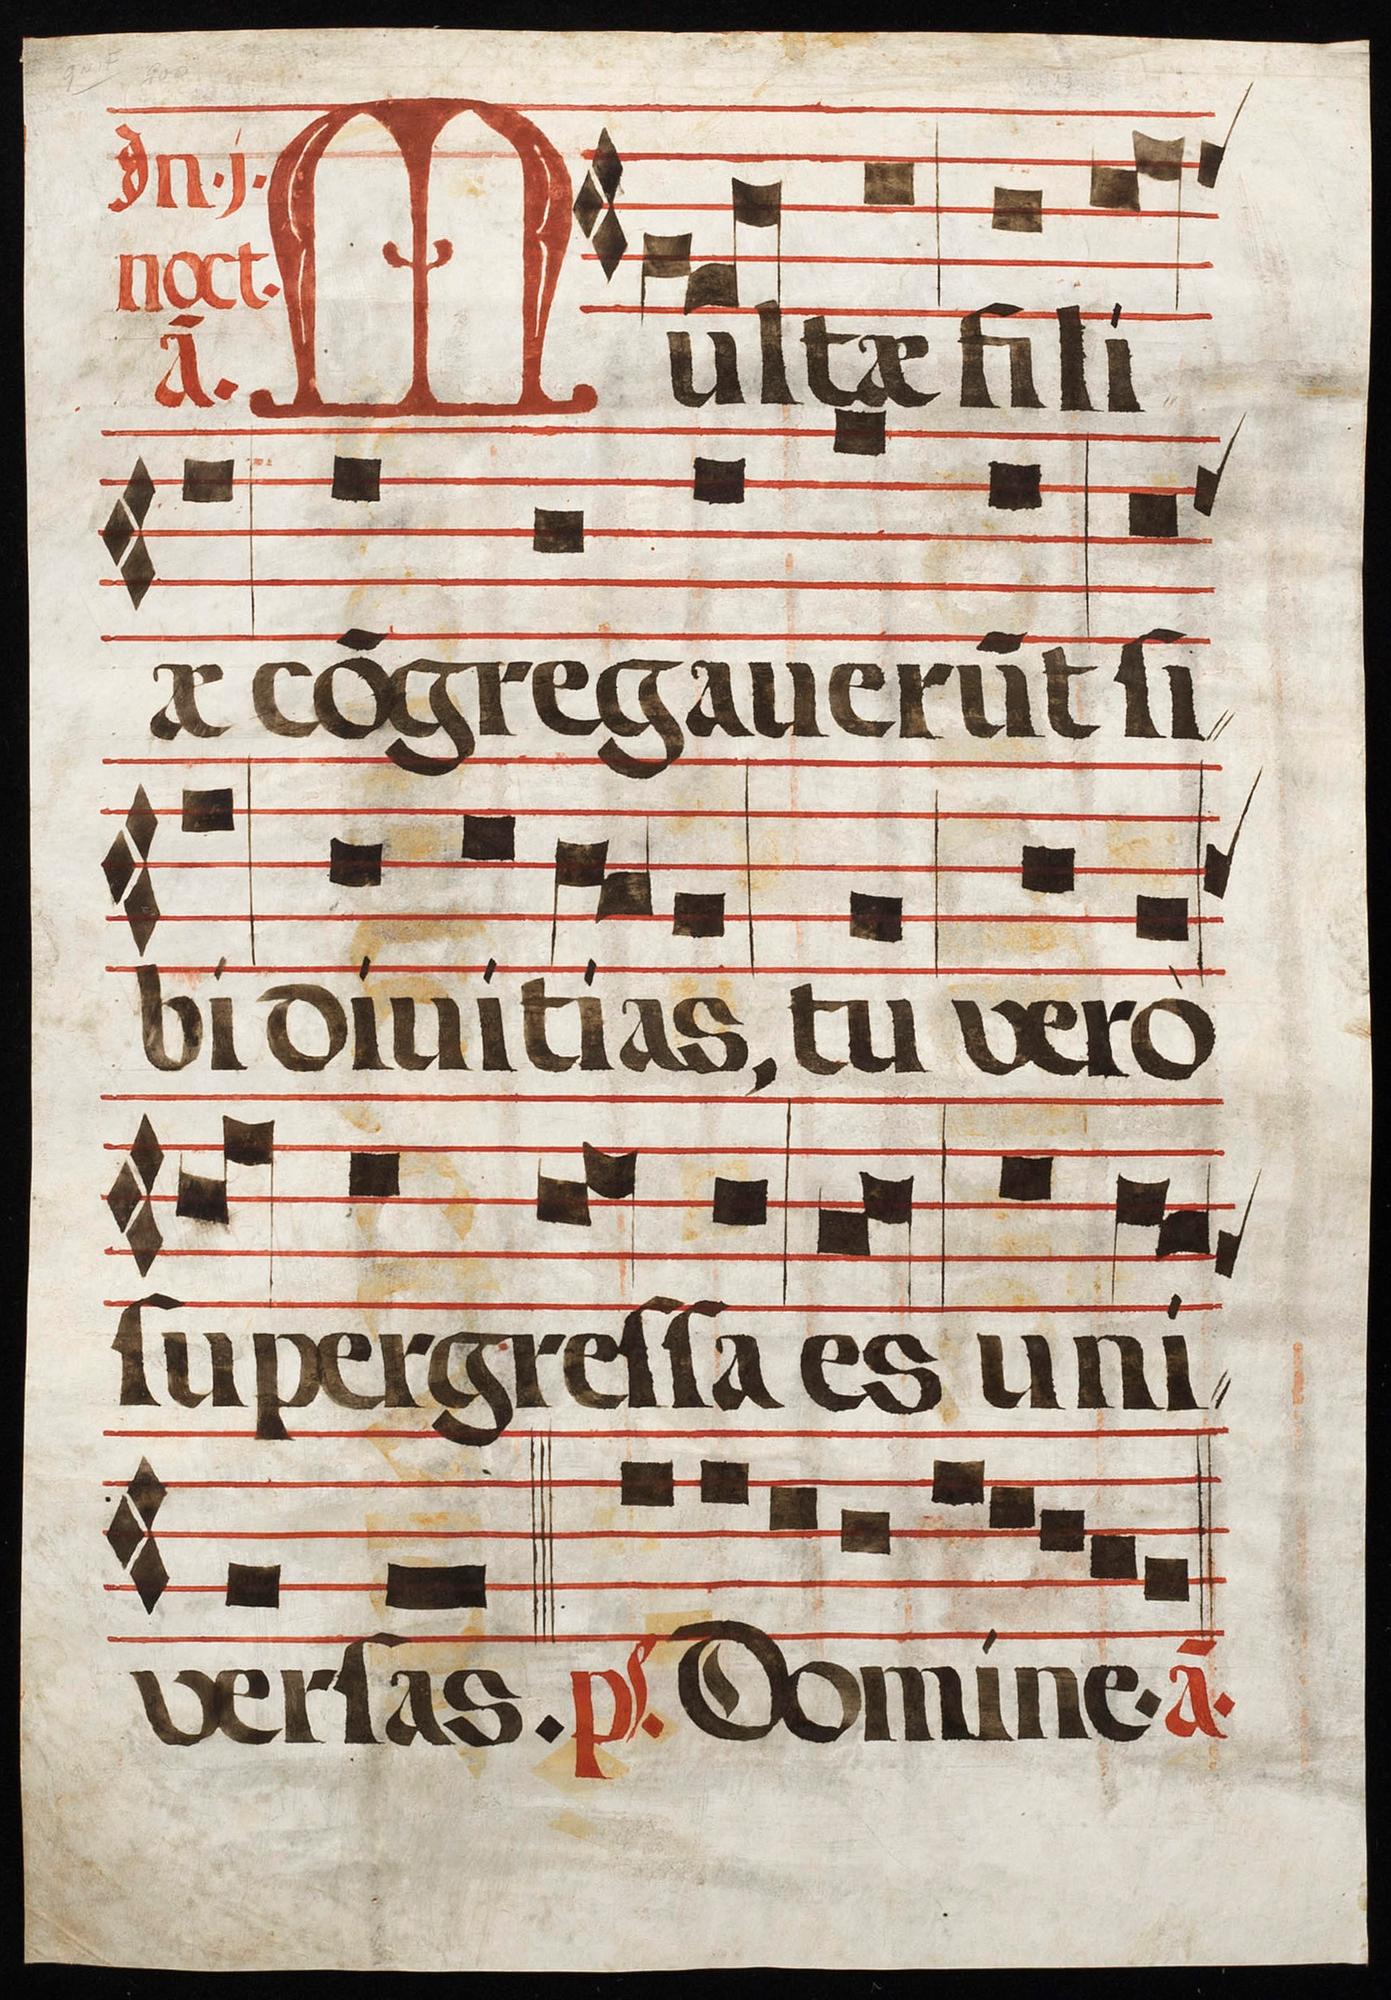 In·j·
noct.
ā.
Multæ fili
æ cōgregauerūt ſi〃
bi diuitias, tu verò
ſupergreſſa es uni〃
verſas. pſ. Domine· ā.